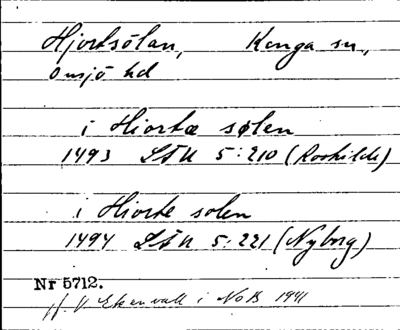 Hjortsölan, Konga sn,
Onsjö hd
i Hiortæ sølen
1493 LÅU 5:210 (Roskilde)
i Hiorte solen
1494 LÅU 5:221 (Nyborg)
Nr 5712.
jf. V. Ekenvall i NoB 1941